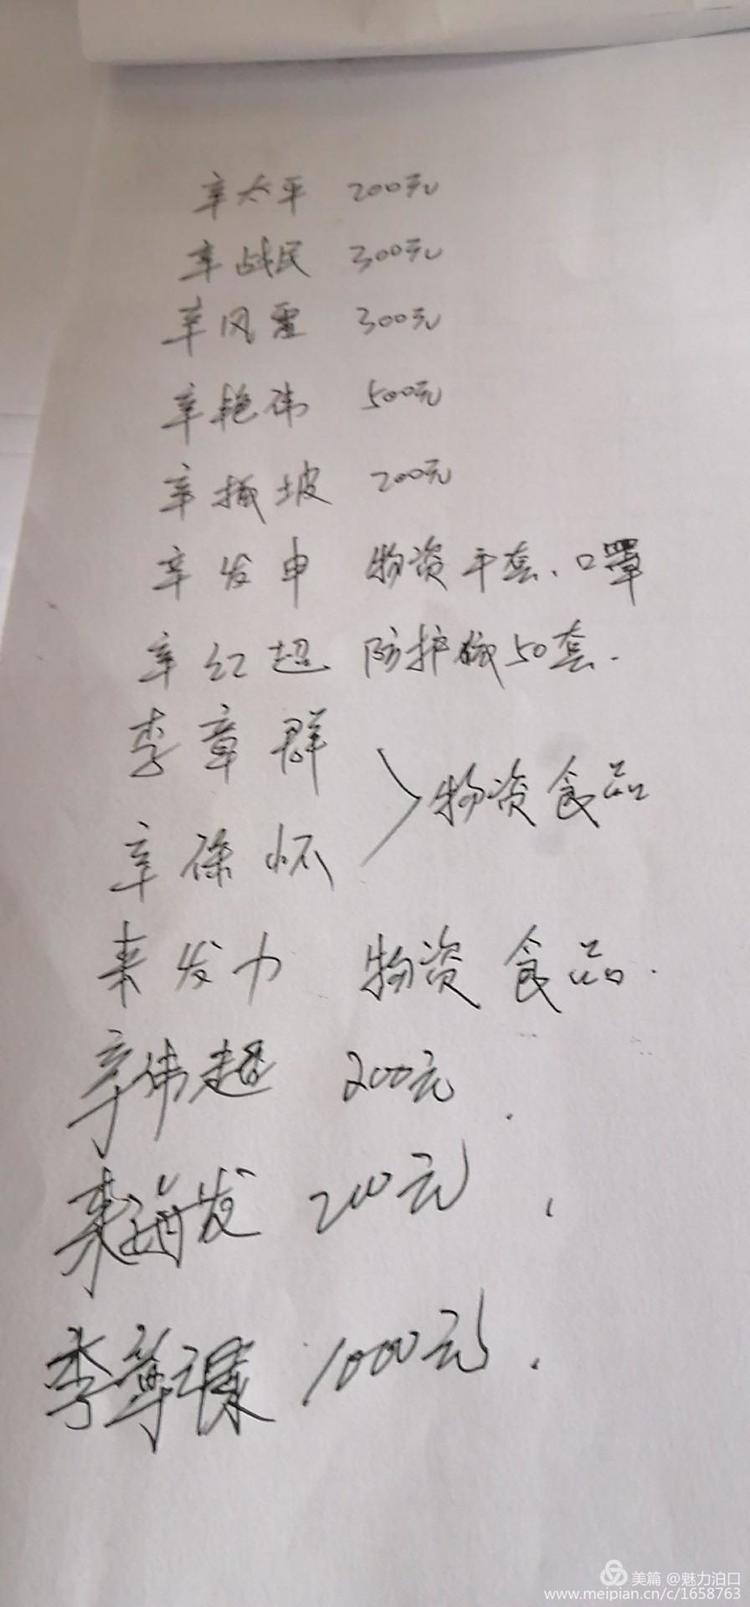 辛太平 200元
辛战民 300元
辛风雷 300元
辛艳伟 500元
辛振坡 200元
辛发申 物资手套、口罩
辛红超 防护碱50套.
李章群
物资食品
辛保怀
来发力 物资食品.
辛伟超 200元.
来海发 200元.
李章 1000元.
美篇 @魅力泊口
www.meipian.cn/c/1658763